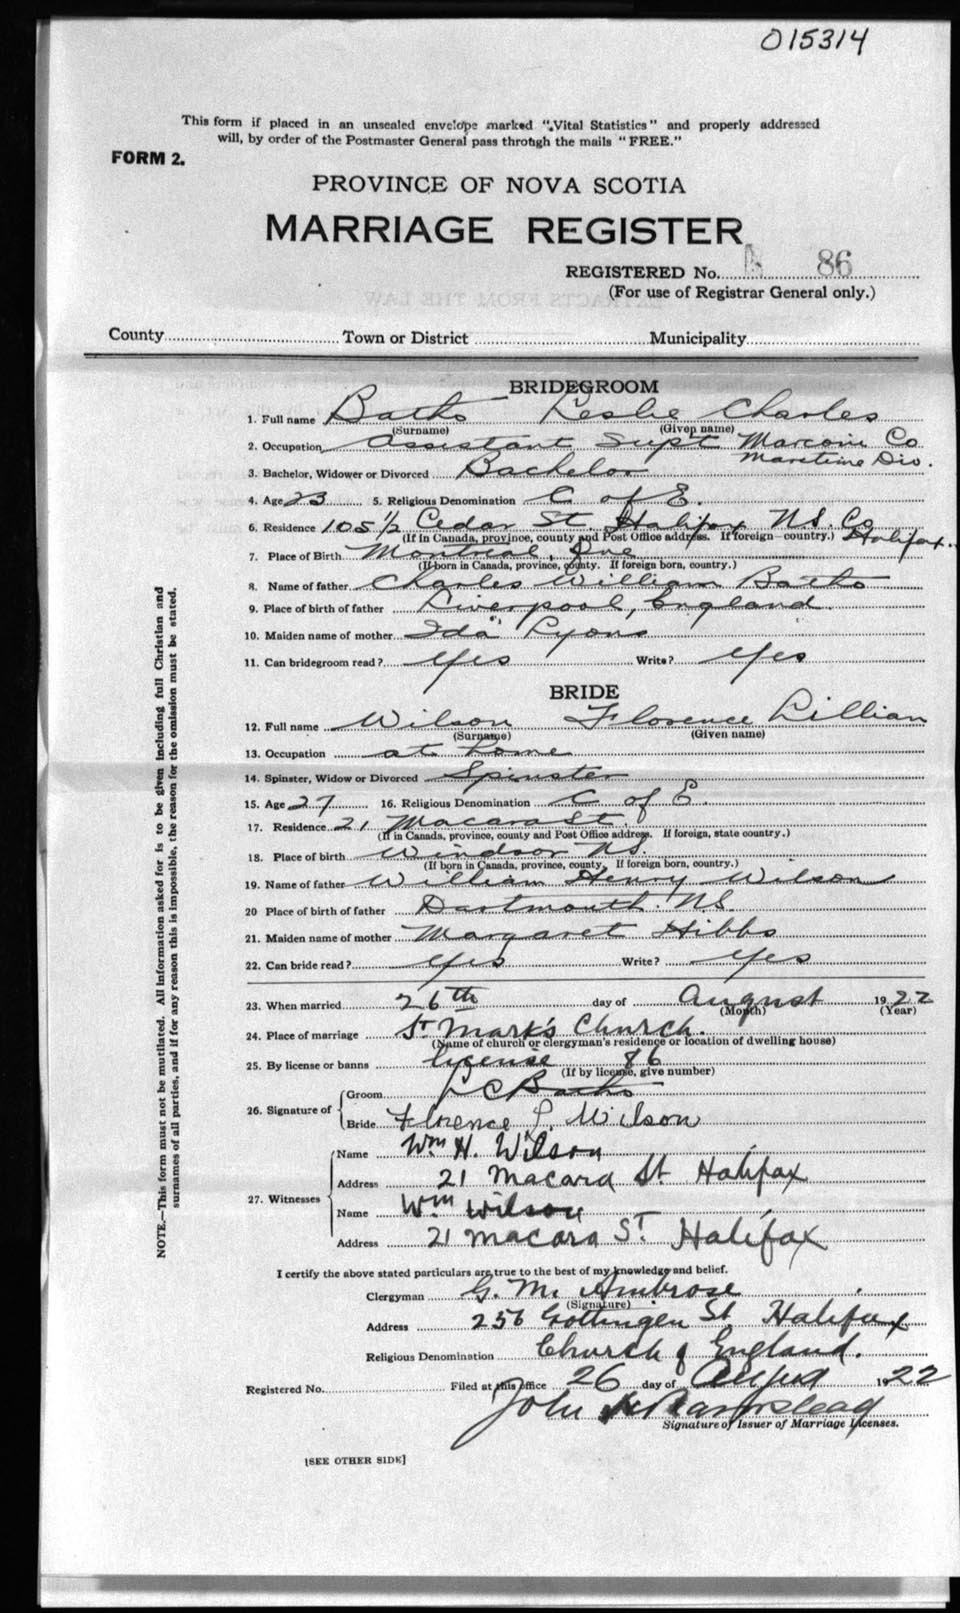 015314
This form if placed in an unsealed envelope marked "Vital Statistics" and properly addressed
will, by order of the Postmaster General pass through the mails "FREE."
FORM 2.
PROVINCE OF NOVA SCOTIA
MARRIAGE REGISTER
REGISTERED No. 86
(For use of Registrar General only.)
County Town or District Municipality
BRIDEGROOM
1. Full name Baths Leslie Charles
(Surname) (Given name)
2. Occupation Assistant Supt Marconi Co
Maritime Div.
3. Bachelor, Widower or Divorced Bachelor
4. Age 23 5. Religious Denomination C of E.
6. Residence 105 1/2 Cedar St. Halifax NS. Co
Halifax.
(If in Canada, province, county and Post Office address. If foreign—country.)
7. Place of Birth Montreal, Que
(If born in Canada, province, county. If foreign born, country.)
8. Name of father Charles William Baths
9. Place of birth of father Liverpool, England.
10. Maiden name of mother Ida Lyons
11. Can bridegroom read? Yes Write? Yes
BRIDE
12. Full name Wilson Florence Lillian
(Surname) (Given name)
13. Occupation at home
14. Spinster, Widow or Divorced Spinster
15. Age 27 16. Religious Denomination C of E.
17. Residence 21 Macara St.
(If in Canada, province, county and Post Office address. If foreign, state country.)
18. Place of birth Windsor NS.
(If born in Canada, province, county, If foreign born, country.)
19. Name of father William Henry Wilson
20 Place of birth of father Dartmouth. NS.
21. Maiden name of mother Margaret Hibbs
22. Can bride read? Yes Write? Yes
23. When married 26th day of August 1922
(Month) (Year)
24. Place of marriage St Mark's Church.
(Name of church or clergyman's residence or location of dwelling house)
25. By license or banns license 86
(If by license, give number)
26. Signature of Groom L C Baths
Bride Florence L. Wilson
27. Witnesses Name Wm H. Wilson
Address 21 Macara St Halifax
Name Wm Wilson
Address 21 Macara St Halifax
I certify the above stated particulars are true to the best of my knowledge and belief.
Clergyman G. M. Ambrose
(Signature)
Address 256 Gottingen St. Halifax
Religious Denomination Church of England.
Registered No. Filed at this office 26 day of August 1922
John
Signature of Issuer of Marriage Licenses.
[SEE OTHER SIDE]
NOTE.—This form must not be mutilated. All information asked for is to be given including full Christian and
surnames of all parties, and if for any reason this is impossible, the reason for the omission must be stated.